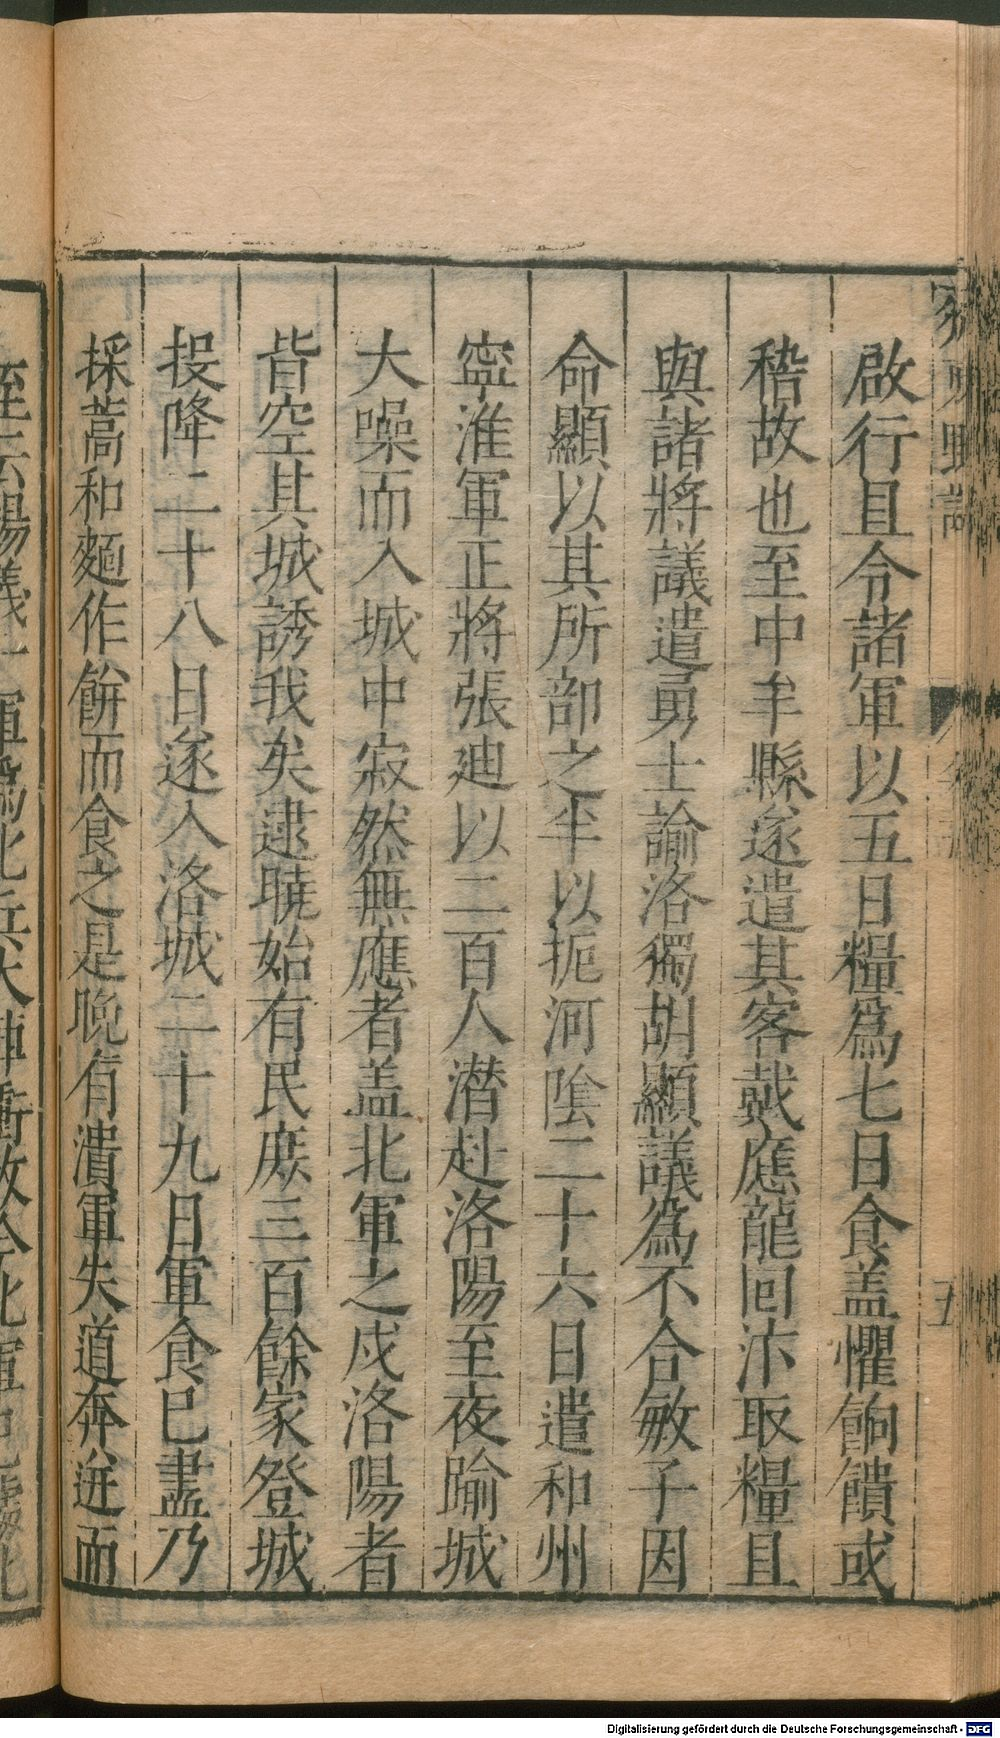 啟行且令諸軍以五日糧爲七日食盖懼餉饋或
稽故也至中牟縣遂遣其客戴應龍回汴取糧且
與諸將議遣勇士諭洛獨胡顯議爲不合敏子因
命顯以其所部之半以扼河陰二十六日遣和州
寧淮軍正將張廸以二百人潜赴洛陽至夜踰城
大噪而入城中寂然無應者盖北軍之戍洛陽者
皆空其城誘我矣逮曉始有民庶三百餘家登城
投降二十八日遂入洛城二十九日軍食巳盡乃
採蒿和麵作餅而食之是晚有潰軍失道奔迸而
Digitalisierung gefördert durch die Deutsche Forschungsgemeinschaft - DFG